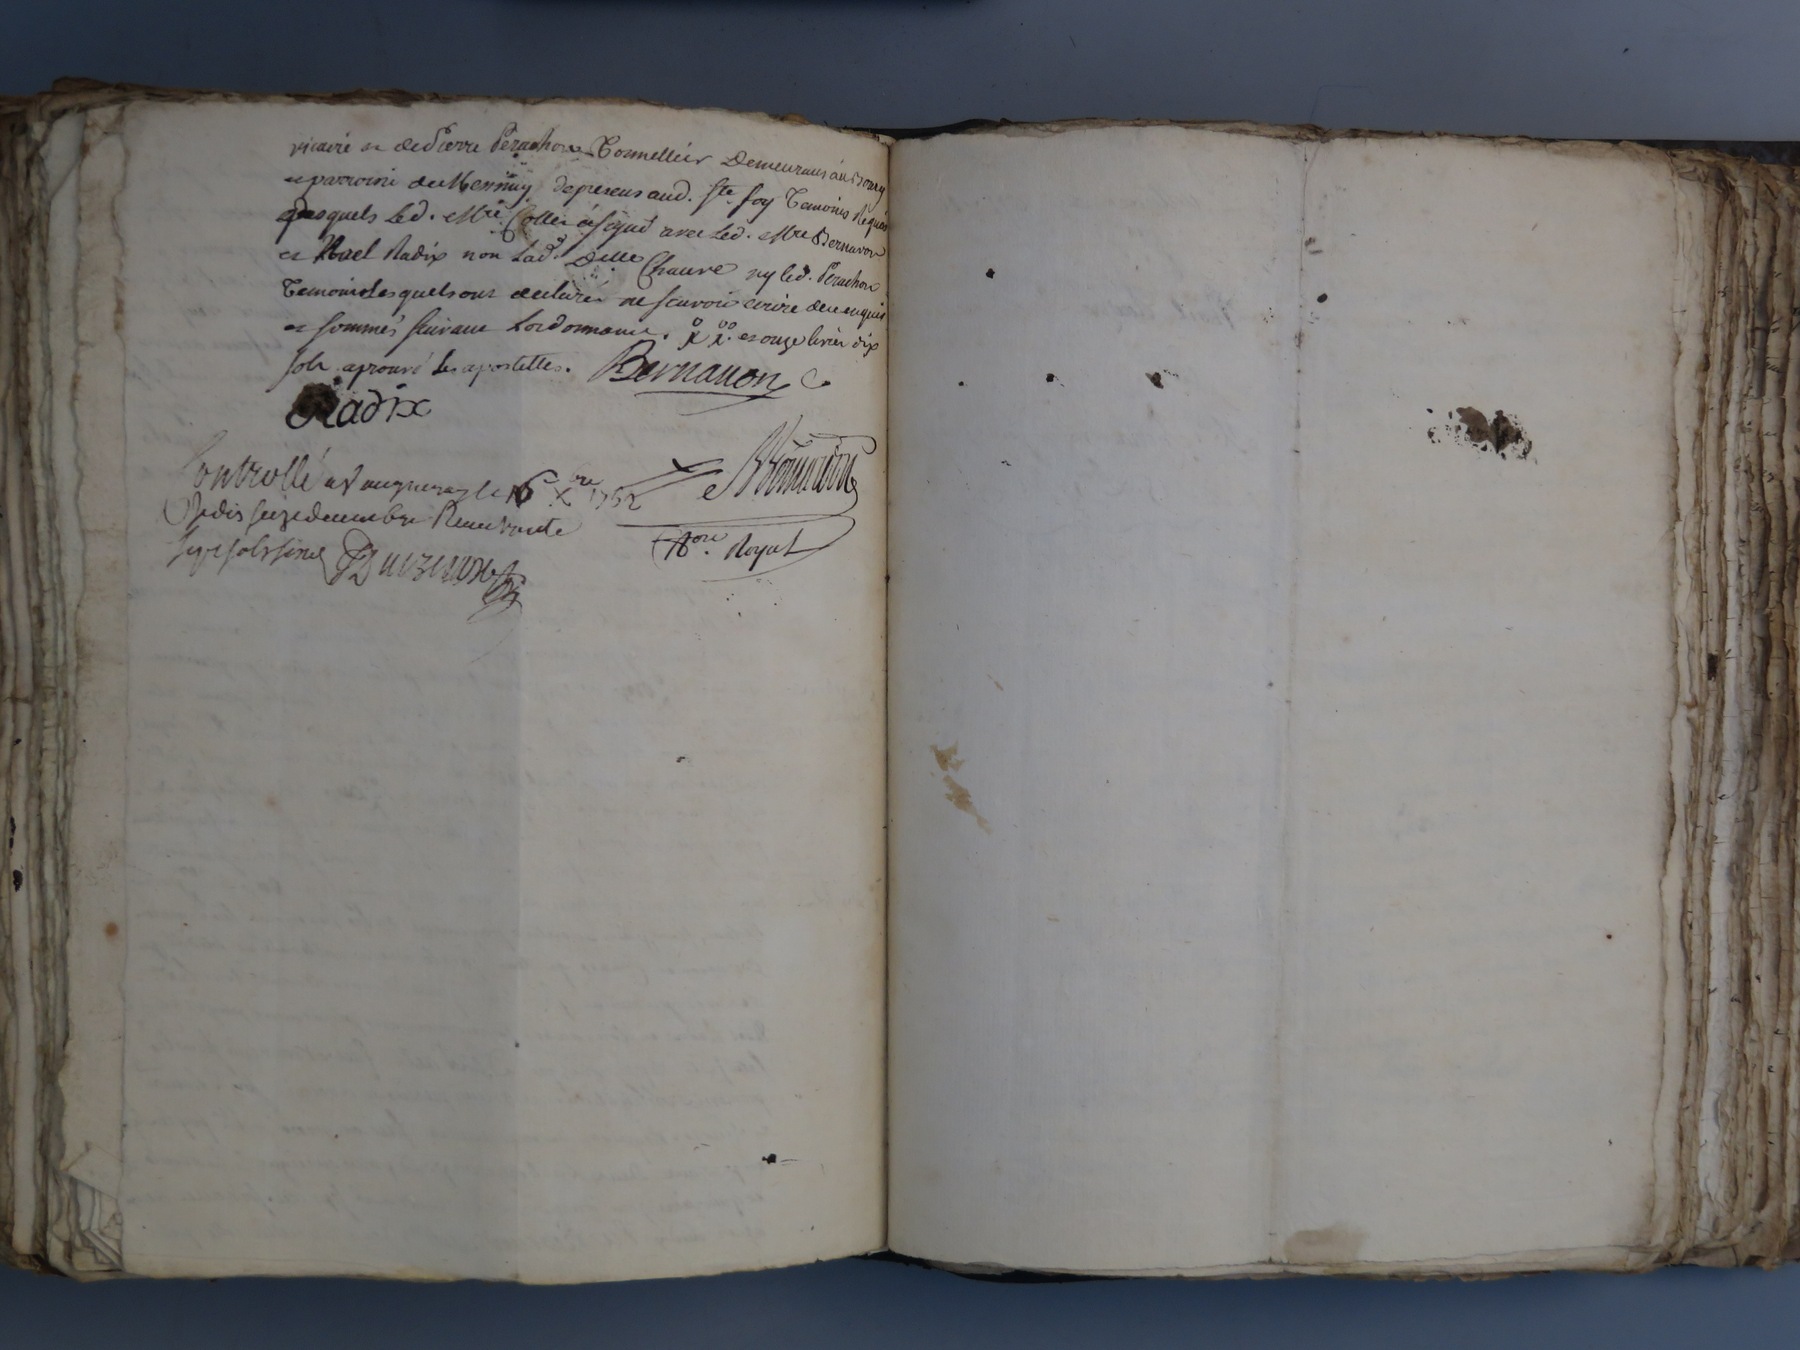 vicaire et de Pierre Perachon Tonnellier Demeurant au Bourg
et parroisse de Messimy de present aud. Ste foy Temoins Requis
Lesquels Led. Mre Collet a signé avec Led. Mre Bernavon
et Noel Radix non Lad. Delle Chauve ny led. Perachon
Temoins Lesquels ont declaré ne scavoir ecrire de ce enquis
et sommés suivant Lordonnance. et onze livres dix
sols aprouvé Les apostilles. Bernavon
Radix
Controllé a Vaugneray le 16 Xbre 1752
seize decembre Receu trente
sept sols six
Nore Royal